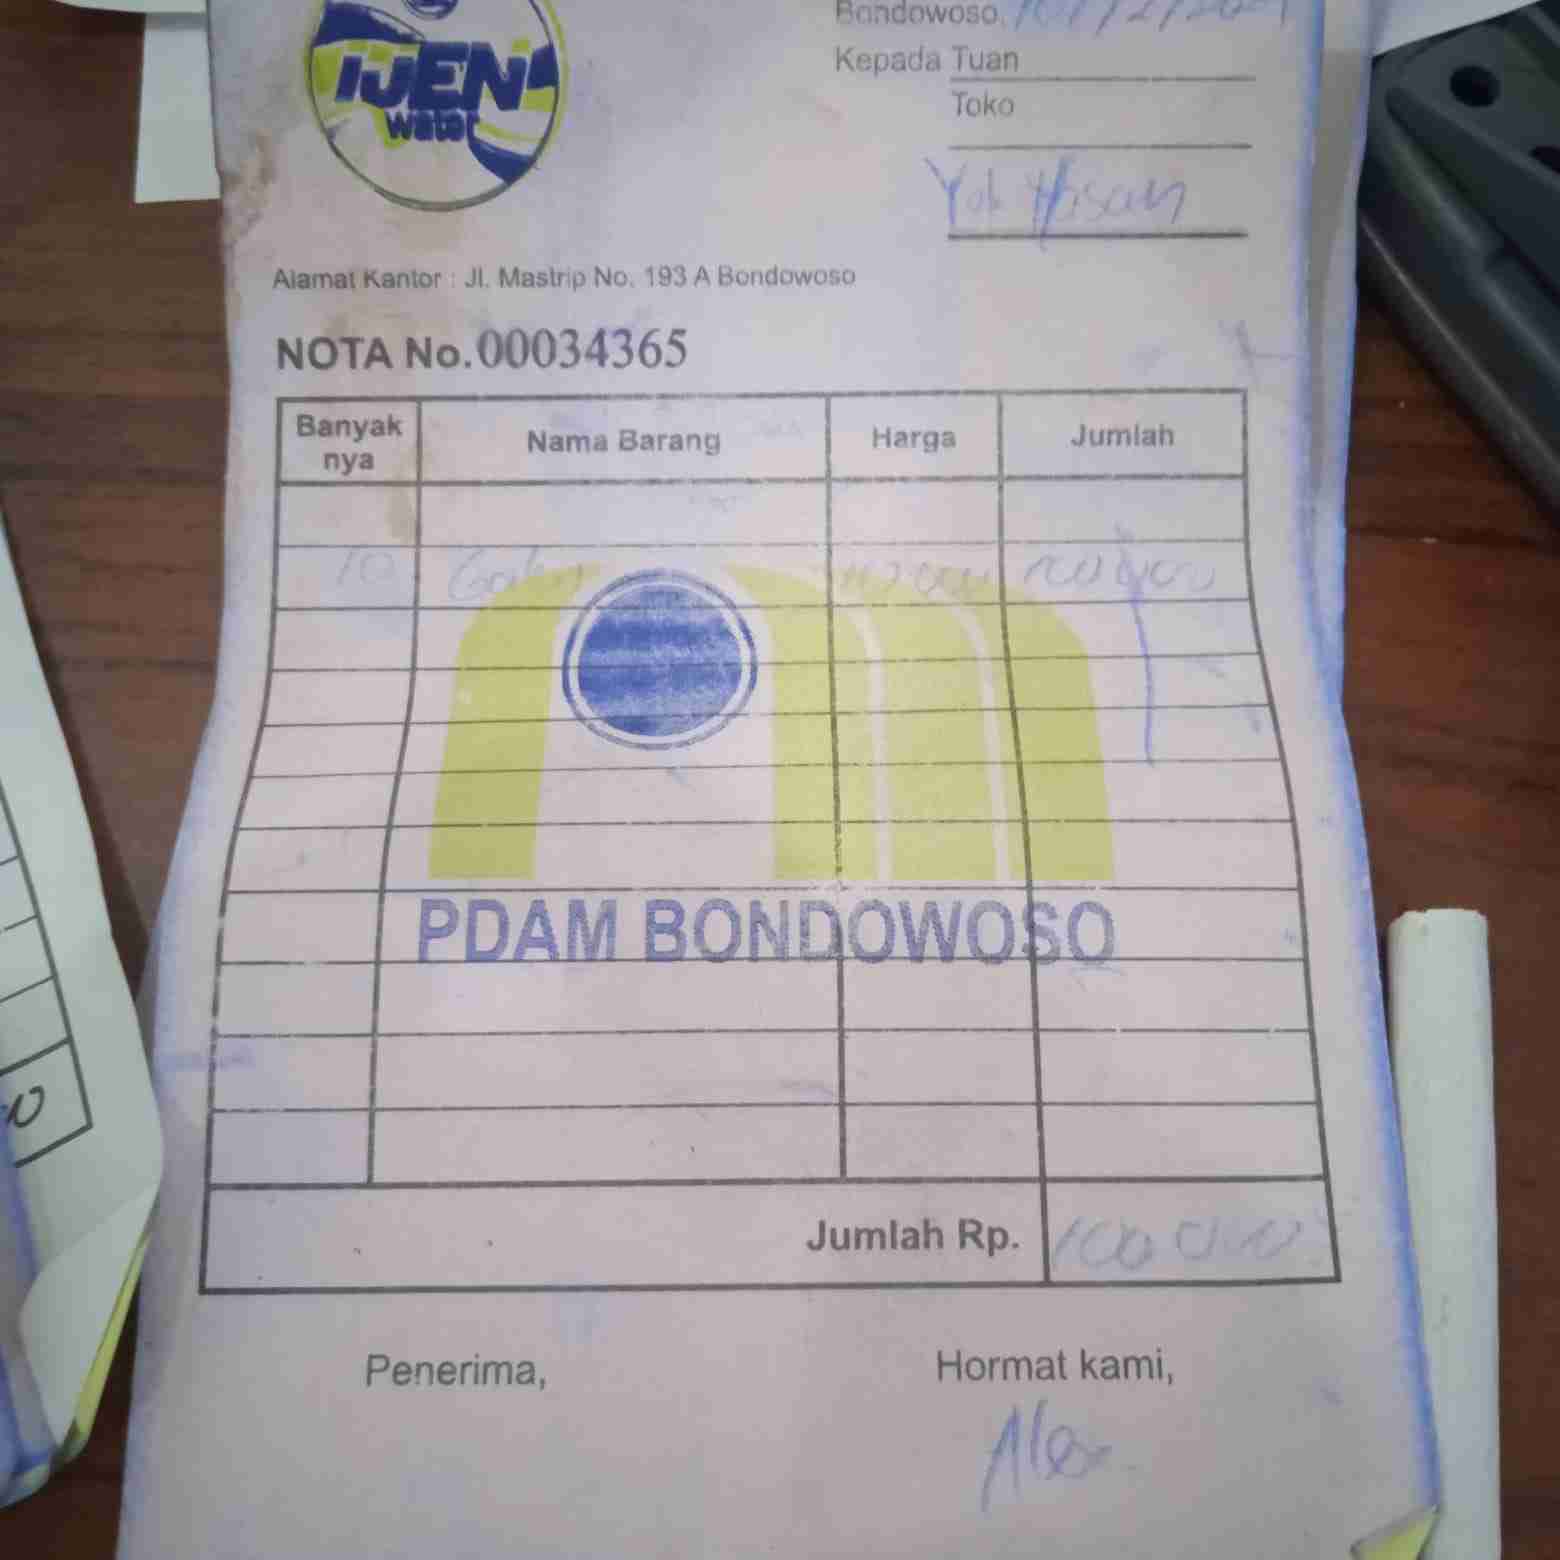 IJEN
water
Bondowoso,
Kepada Tuan
Toko
Hasan
Alamat Kantor : Jl. Mastrip No. 193 A Bondowoso
NOTA No. 00034365
Banyak nya Nama Barang Harga Jumlah
10 Galon 10 000 100 000
PDAM BONDOWOSO
Jumlah Rp. 100 000
Penerima, Hormat kami,
Alex